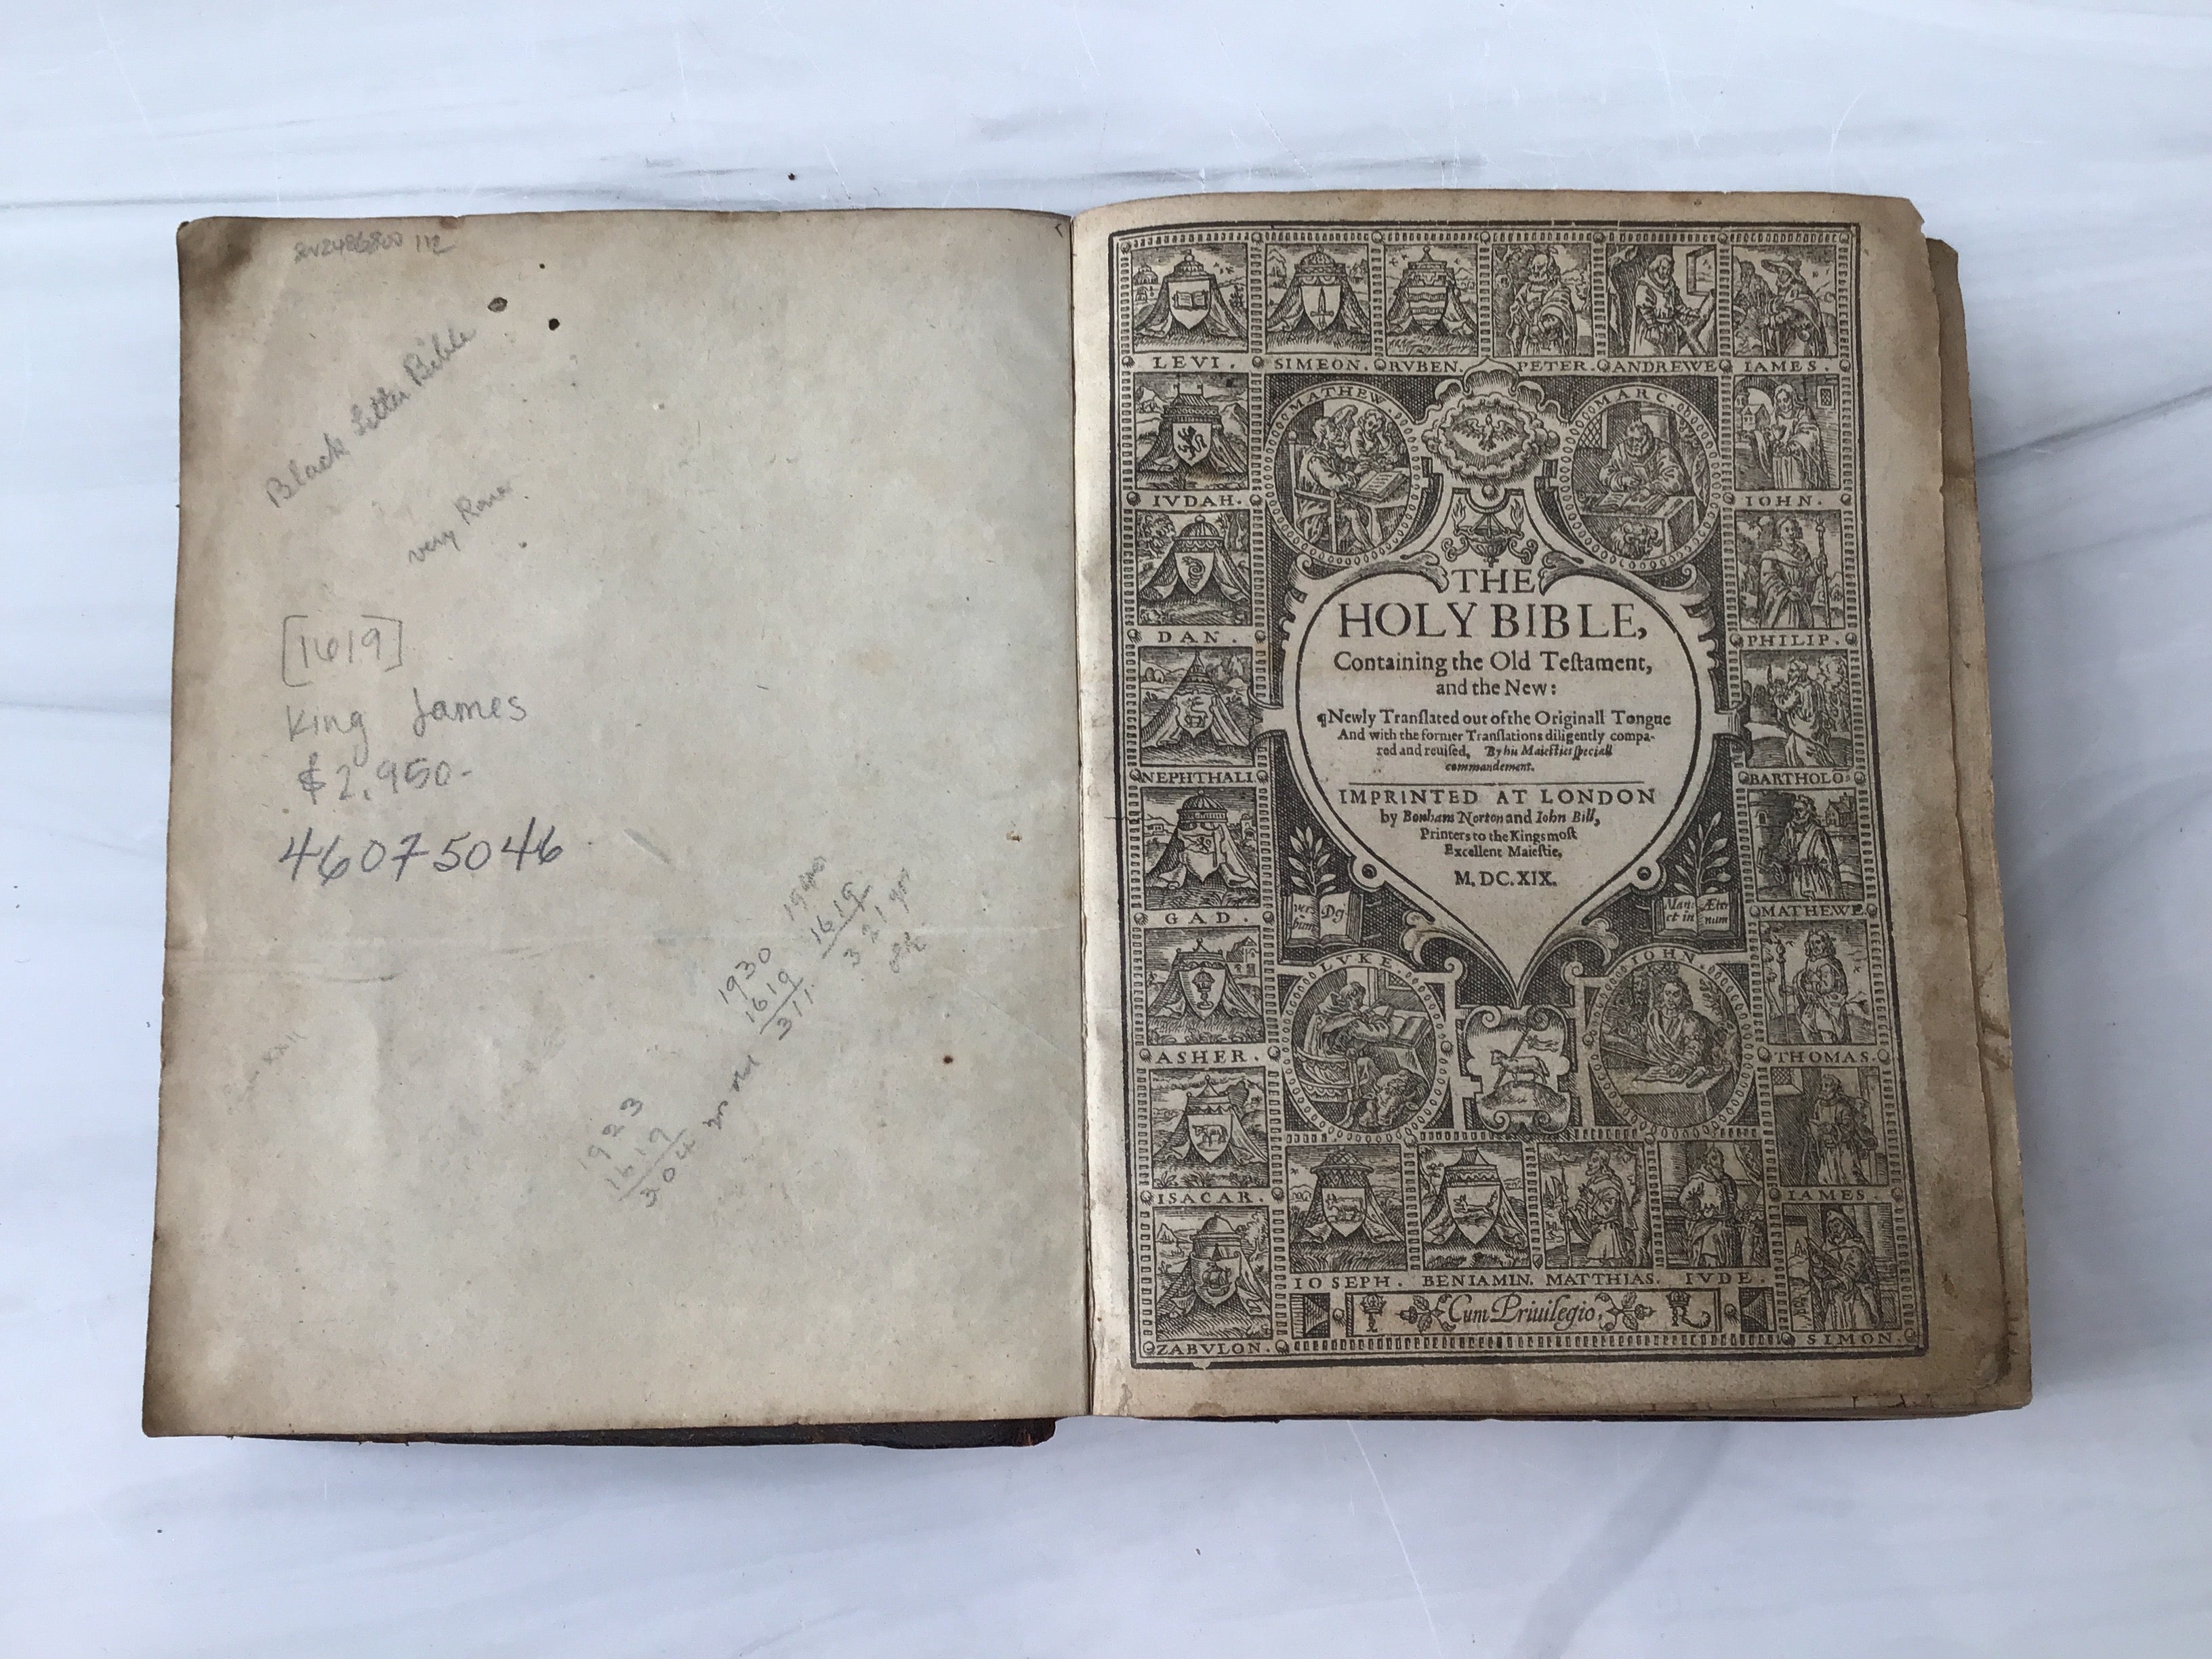 Black Letter Bible
very Rare
[1619]
King James
$2,950-
46075046
1923
1619
304
yrs old
1930
1619
311
1619
321 yrs
LEVI. SIMEON. RVBEN. PETER. ANDREWE IAMES.
MATHEW. MARC.
IVDAH. IOHN.
THE
HOLY BIBLE,
Containing the Old Teſtament,
and the New:
DAN. PHILIP.
¶Newly Tranſlated out of the Originall Tongue
And with the former Tranſlations diligently compa-
red and reuiſed, By his Maieſties ſpeciall
commandement.
NEPHTHALI. BARTHOLO
IMPRINTED AT LONDON
by Bonham Norton and Iohn Bill,
Printers to the Kings moſt
Excellent Maieſtie,
M. DC. XIX.
GAD. MATHEWE
ver Dei
bum
Man Æter
et in num
LVKE. IOHN.
ASHER. THOMAS.
ISACAR. IAMES.
IOSEPH. BENIAMIN. MATTHIAS. IVDE.
Cum Priuilegio.
ZABVLON. SIMON.